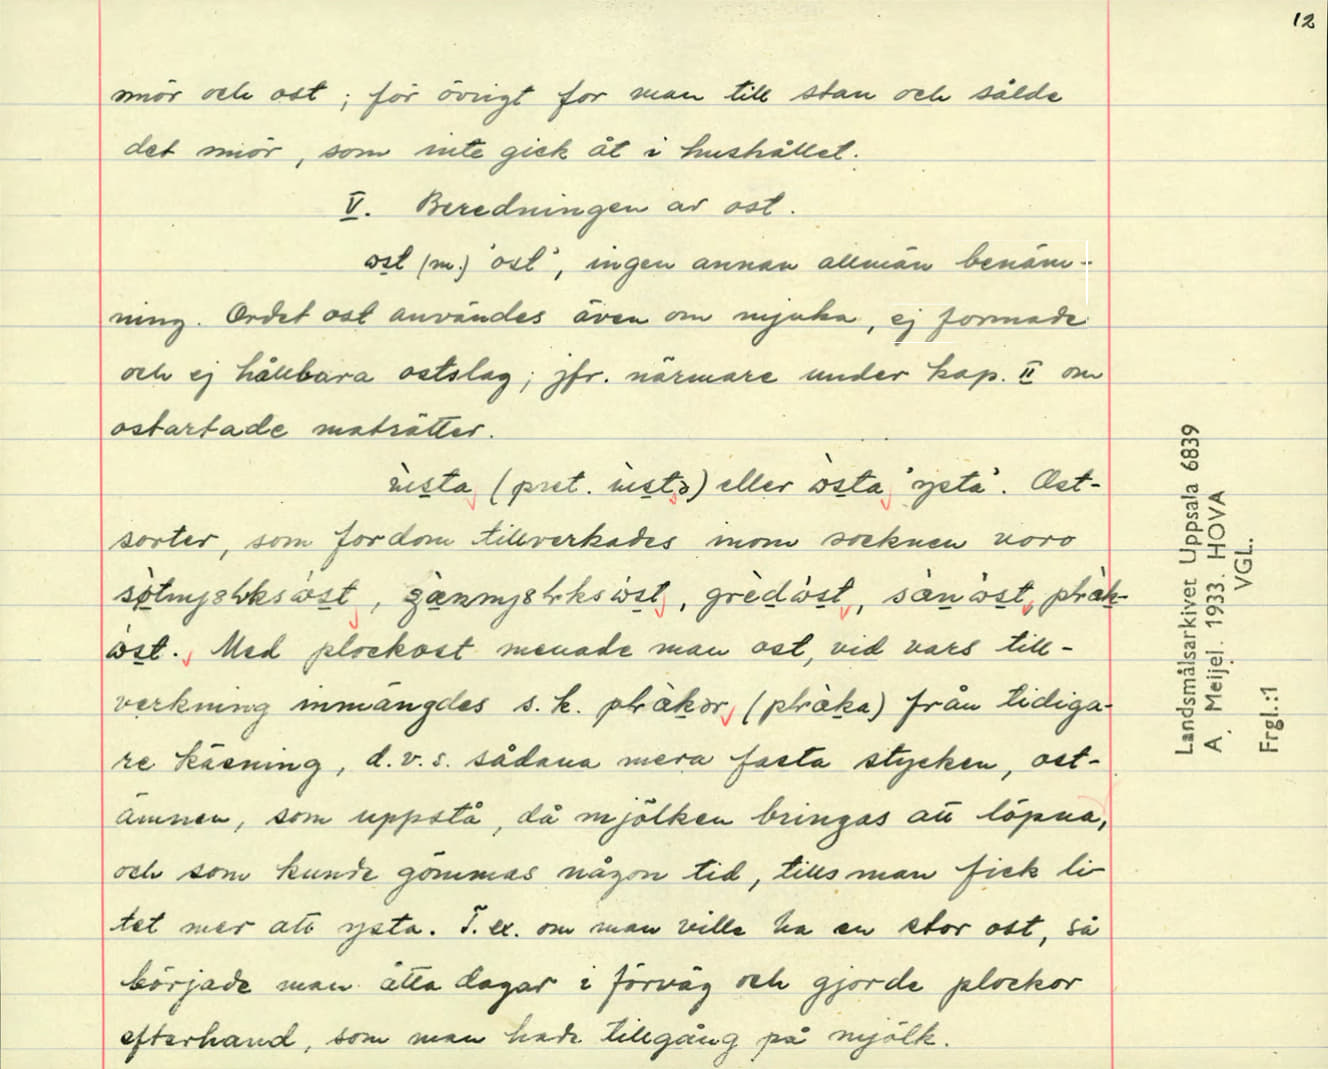 12
smör och ost; för övrigt for man till stan och sålde
det smör, som inte gick åt i hushållet.
V. Beredningen av ost.
ost (m.) 'ost', ingen annan allmän benäm-
ning. Ordet ost användes även om mjuka, ej formade
och ej hållbara ostslag; jfr. närmare under kap. II om
ostartade maträtter.
(pret. ) eller 'ysta'. Ost-
sorter, som fordom tillverkades inom socknen voro
Med plockost menade man ost, vid vars till-
verkning inmängdes s. k. från tidiga-
re käsning, d.v.s. sådana mera fasta stycken, ost-
ämnen, som uppstå, då mjölken bringas att löpna,
och som kunde gömmas någon tid, tills man fick li-
tet mer att ysta. T. ex. om man ville ha en stor ost, så
började man åtta dagar i förväg och gjorde plockor
efterhand, som man hade tillgång på mjölk.
Landsmålsarkivet Uppsala 6839
A. Meijel. 1933. HOVA
VGL.
Frgl.:1